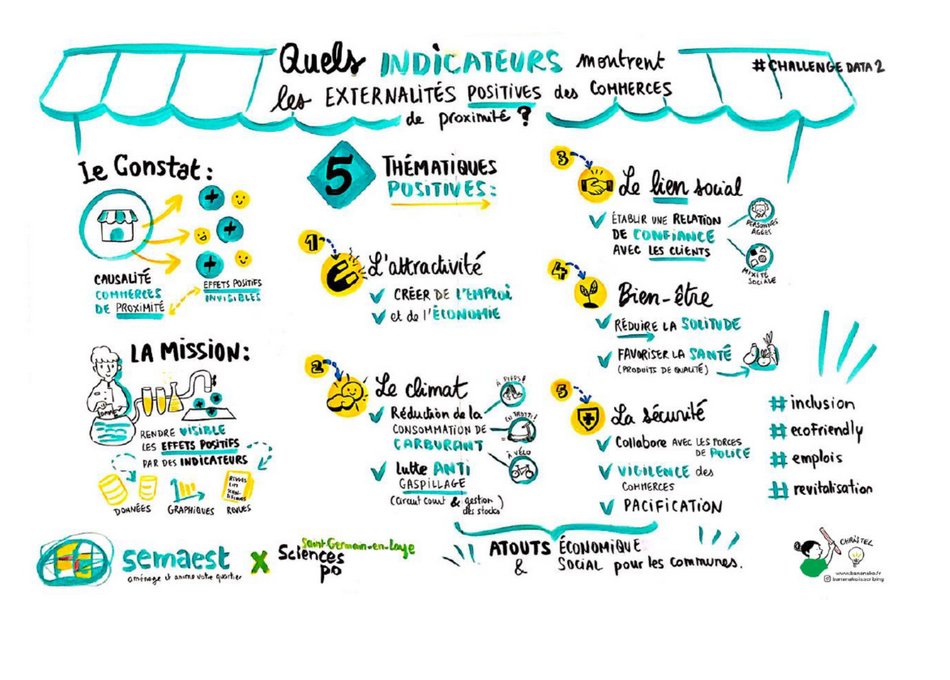 Quels INDICATEURS montrent
les EXTERNALITÉS POSITIVES des COMMERCES
de proximité ?
#CHALLENGE DATA 2
le Constat :
CAUSALITÉ
COMMERCES
DE PROXIMITÉ
EFFETS POSITIFS
INVISIBLES
LA MISSION :
RENDRE VISIBLE
LES EFFETS POSITIFS
PAR DES INDICATEURS
DONNÉES
GRAPHIQUES
REVUES
5 THÉMATIQUES
POSITIVES :
1
L'attractivité
CRÉER DE L'EMPLOI
et de l'ÉCONOMIE
2
Le climat
Réduction de la
CONSOMMATION DE
CARBURANT
À PIEDS!
EN TRAIN!
À VÉLO
lutte ANTI
GASPILLAGE
(circuit court & gestion
des stocks)
3
Le lien social
ÉTABLIR UNE RELATION
DE CONFIANCE
AVEC LES CLIENTS
PERSONNES
AGÉES
MIXITÉ
SOCIALE
4
Bien-être
RÉDUIRE LA SOLITUDE
FAVORISER LA SANTÉ
(PRODUITS DE QUALITÉ)
5
La sécurité
Collabore AVEC LES FORCES
DE POLICE
VIGILENCE des
COMMERCES
PACIFICATION
#inclusion
#ecofriendly
#emplois
#revitalisation
semaest
aménage et anime votre quartier
X
Saint-Germain-en-Laye
Sciences
Po
ATOUTS ÉCONOMIQUE
& SOCIAL pour les communes.
CHRISTEL
www.bananako.fr